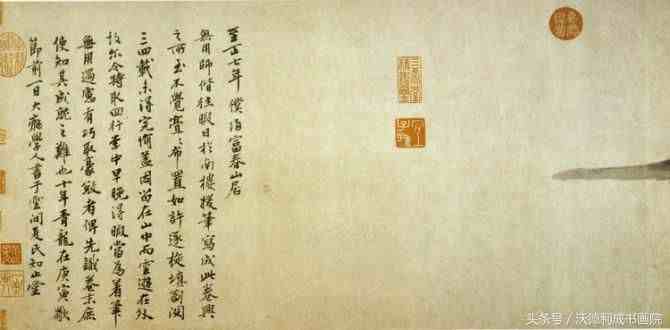 至正七年僕歸富春山居
無用師偕往暇日於南樓援筆寫成此卷興
之所至不覺亹亹布置如許逐旋填劄閱
三四載未得完備蓋因留在山中而雲遊在外
故尔今特取回行李中早晚得暇當為著筆
無用過慮有巧取豪敚者俾先識卷末庶
使知其成就之難也十年青龍在庚寅歜
節前一日大癡學人書于雲間夏氏知止堂
头条号／沃德莉成书画院